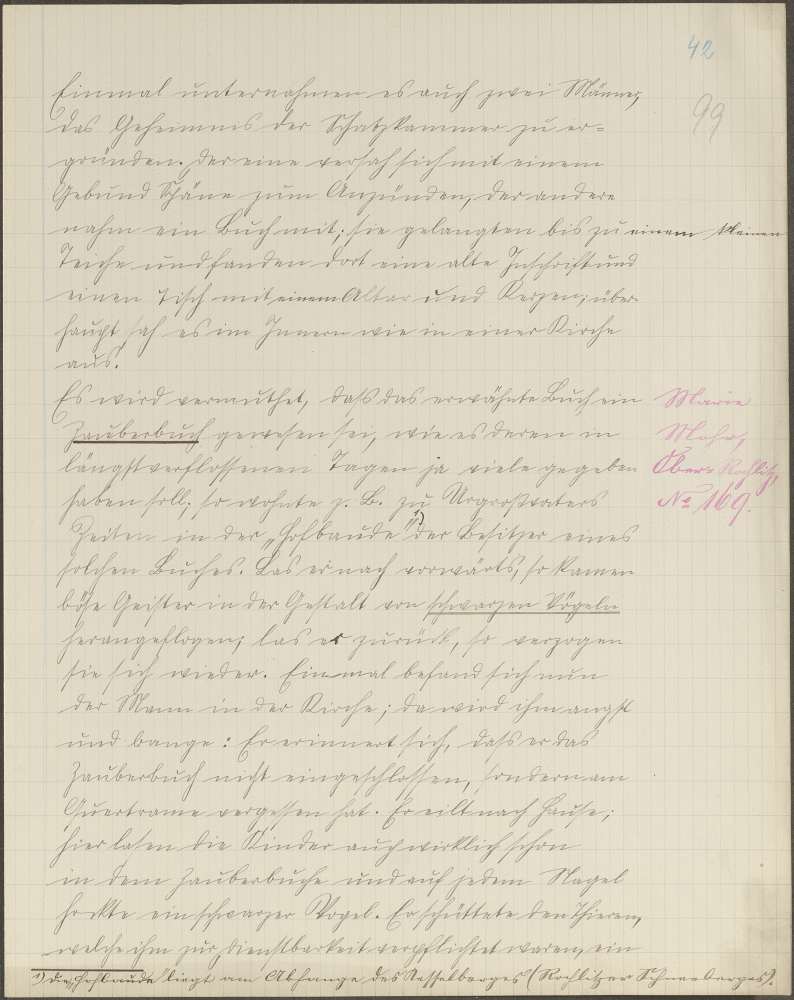 42
99
Einmal unternahmen es auch zwei Männer,
das Geheimnis der Schatzkammer zu er=
gründen. Der eine versah sich mit einem
Gebund Späne zum Anzünden, der andere
nahm ein Buch mit; sie gelangten bis zu einem kleinen
Teiche und fanden dort eine alte Inschrift und
einen Tisch mit einem Altar und Kerzen; über-
haupt sah es im Innern wie in einer Kirche
aus.
Es wird vermuthet, daß das erwähnte Buch ein
Zauberbuch gewesen sei, wie es deren in
längstverflossenen Tagen ja viele gegeben
haben soll; so wohnte z. B. zu Urgroßvaters
Zeiten in der „Hofbaude“ 1) der Besitzer eines
solchen Buches. Las er nach vorwärts, so kamen
böse Geister in der Gestalt von schwarzen Vögeln
herangeflogen; las er zurück, so verzogen
sie sich wieder. Einmal befand sich nun
der Mann in der Kirche; da wird ihm angst
und bange: Er erinnert sich, daß er das
Zauberbuch nicht eingeschlossen, sondern am
Quertrame vergessen hat. Er eilt nach Hause;
hier lasen die Kinder auch wirklich schon
in dem Zauberbuche und auf jedem Nagel
hockte ein schwarzer Vogel. Er schüttete den Thieren,
welche ihm zur Dienstbarkeit verpflichtet waren, ein
Marie
Mohr,
Ober-Rochlitz,
No 169.
1) die „Hofbaude“ liegt am Abhange des Kesselberges (Rochlitzer Schneeberges).